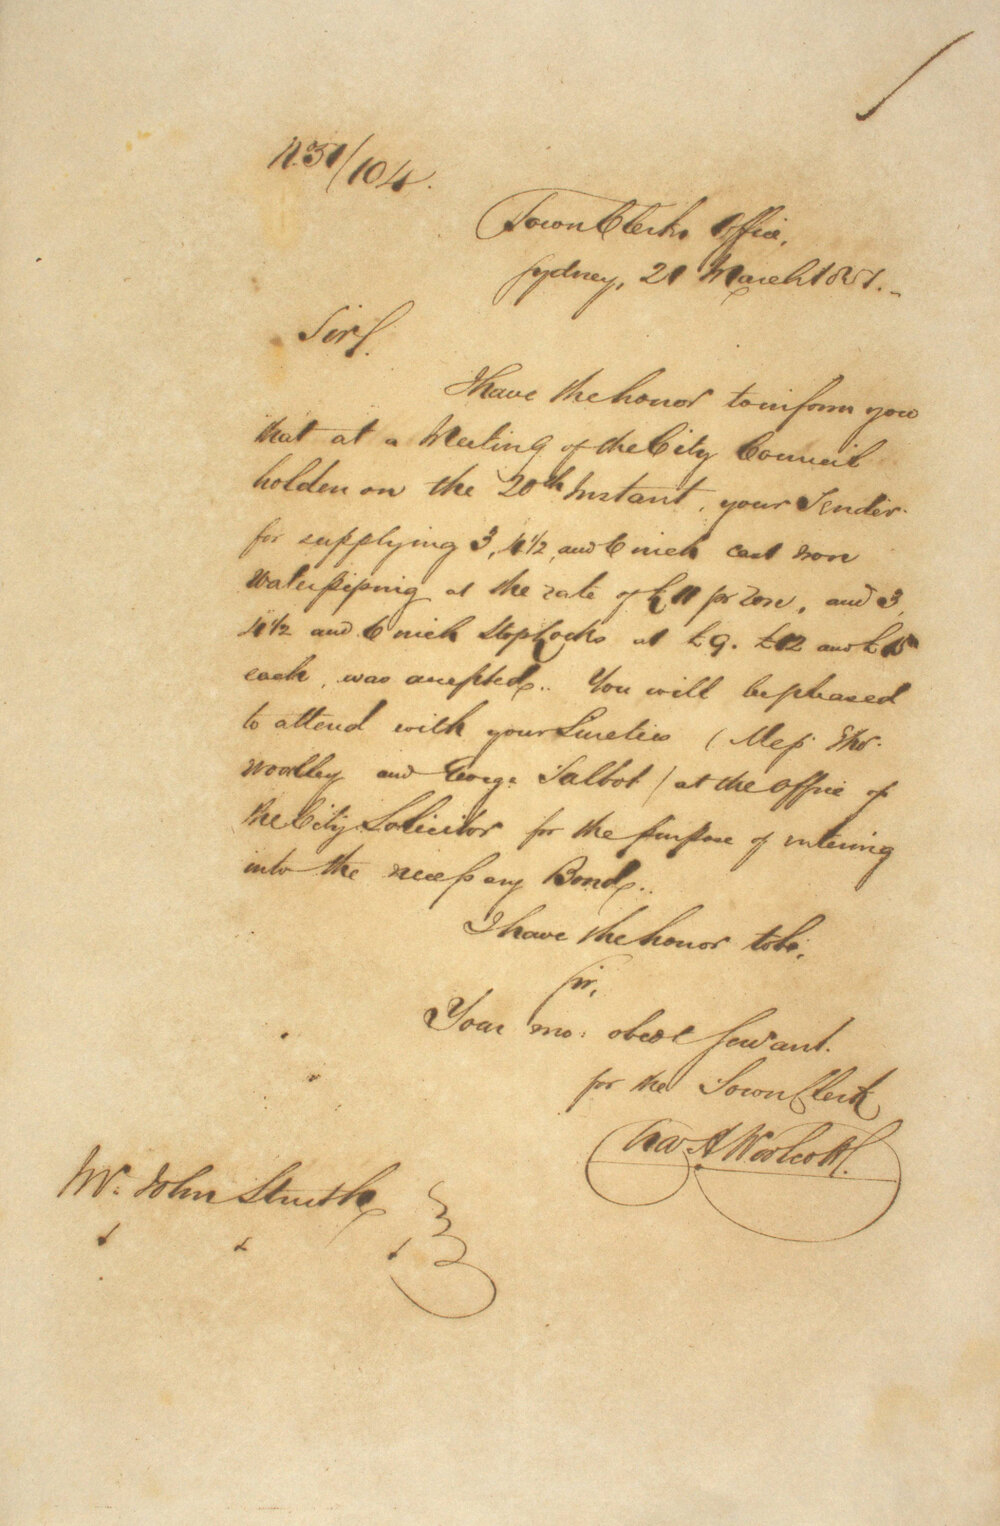 N. 51/104.
Town Clerks Office,
Sydney, 21 March 1851.
Sir,
I have the honor to inform you
that at a Meeting of the City Council
holden on the 20th Instant, your Tender
for supplying 3, 4½, and 6 inch cast iron
Waterpiping at the rate of £11 pr Ton, and 3,
4½ and 6 inch StopCocks at £9. £12 and £15
each, was accepted. You will be pleased
to attend with your Sureties (Mess
Woolley and George Talbot) at the Office of
the City Solicitor for the purpose of entering
into the necessary Bond.
I have the honor to be,
Sir,
Your mo: obedt Servant.
for the Town Clerk
Chas H Woolcott.
Mr. John Struth